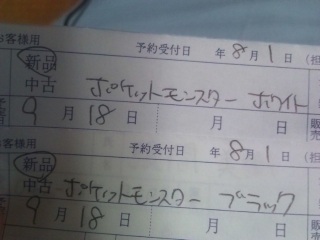 お客様用 予約受付日 年 8月 1日 (担
新品
中古 ポケットモンスター ホワイト
9月 18日 月 日 販売
新品 予約受付日 年 8月 1日 (担
中古 ポケットモンスター ブラック
9月 18日 月 日